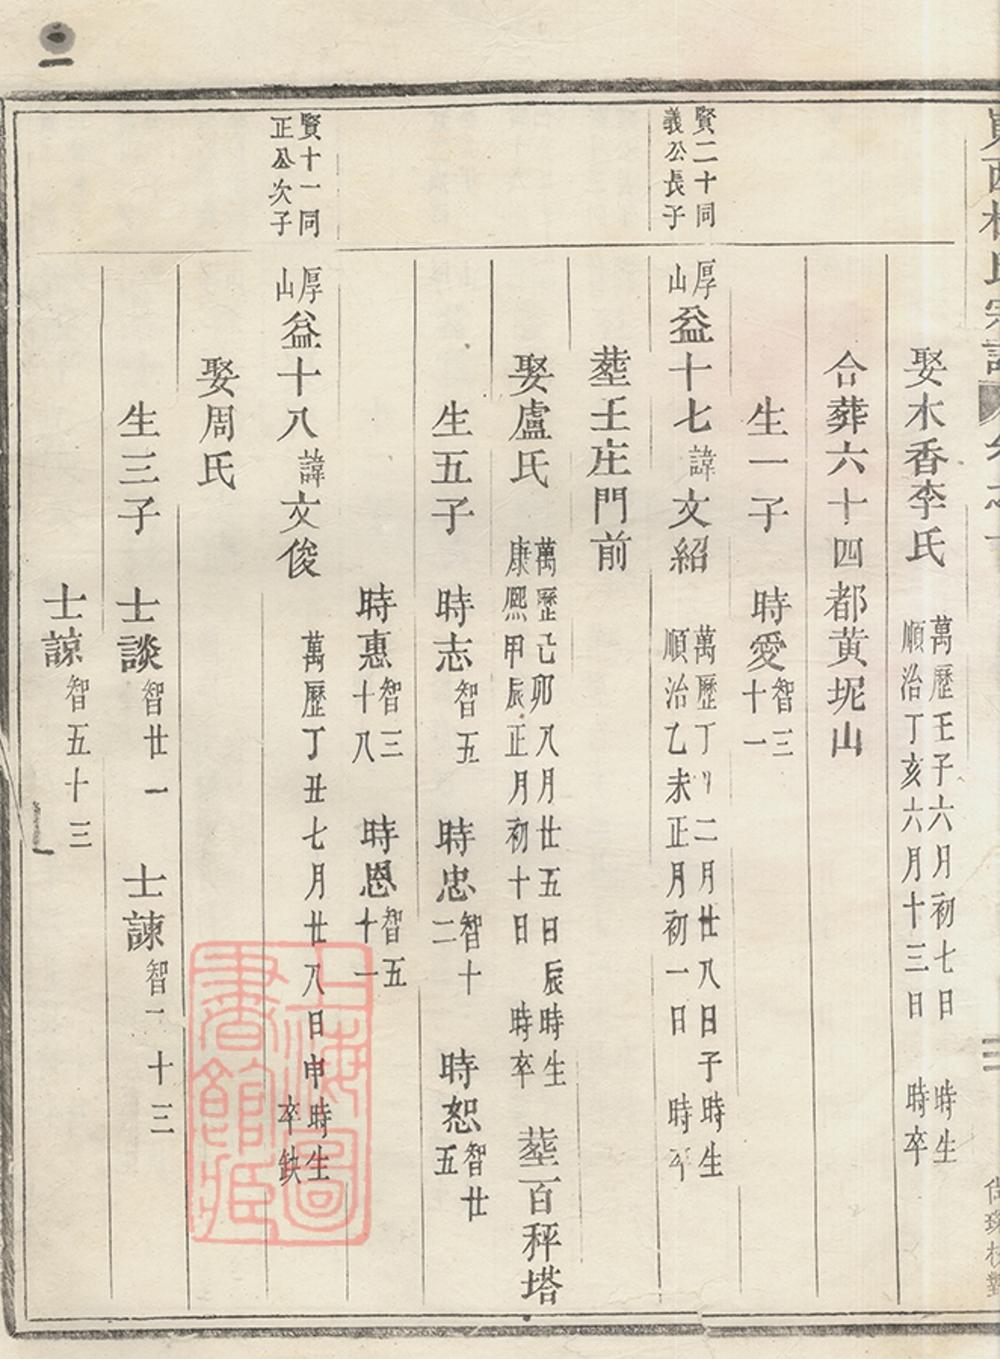 娶木香李氏 萬歷壬子六月初七日 時生 順治丁亥六月十三日 時卒
合葬六十四都黄坭山
生一子 時愛智三十一
賢二十同義公長子
厚山益十七諱文紹 萬歷丁 二月廿八日子時生 順治乙未正月初一日 時卒
塟王庄門前
娶盧氏 萬歷己卯八月廿五日辰時生 康熙甲辰正月初十日 時卒 塟百秤塔
生五子 時志智五 時忠智十二 時恕智廿五
時惠智三十八 時恩智五十一
賢十一同正公次子
厚山益十八諱文俊 萬歷丁丑七月廿八日申時生 卒缺
娶周氏
生三子 士談智廿一 士諫智 十三
士諒智五十三
上海圖書館藏